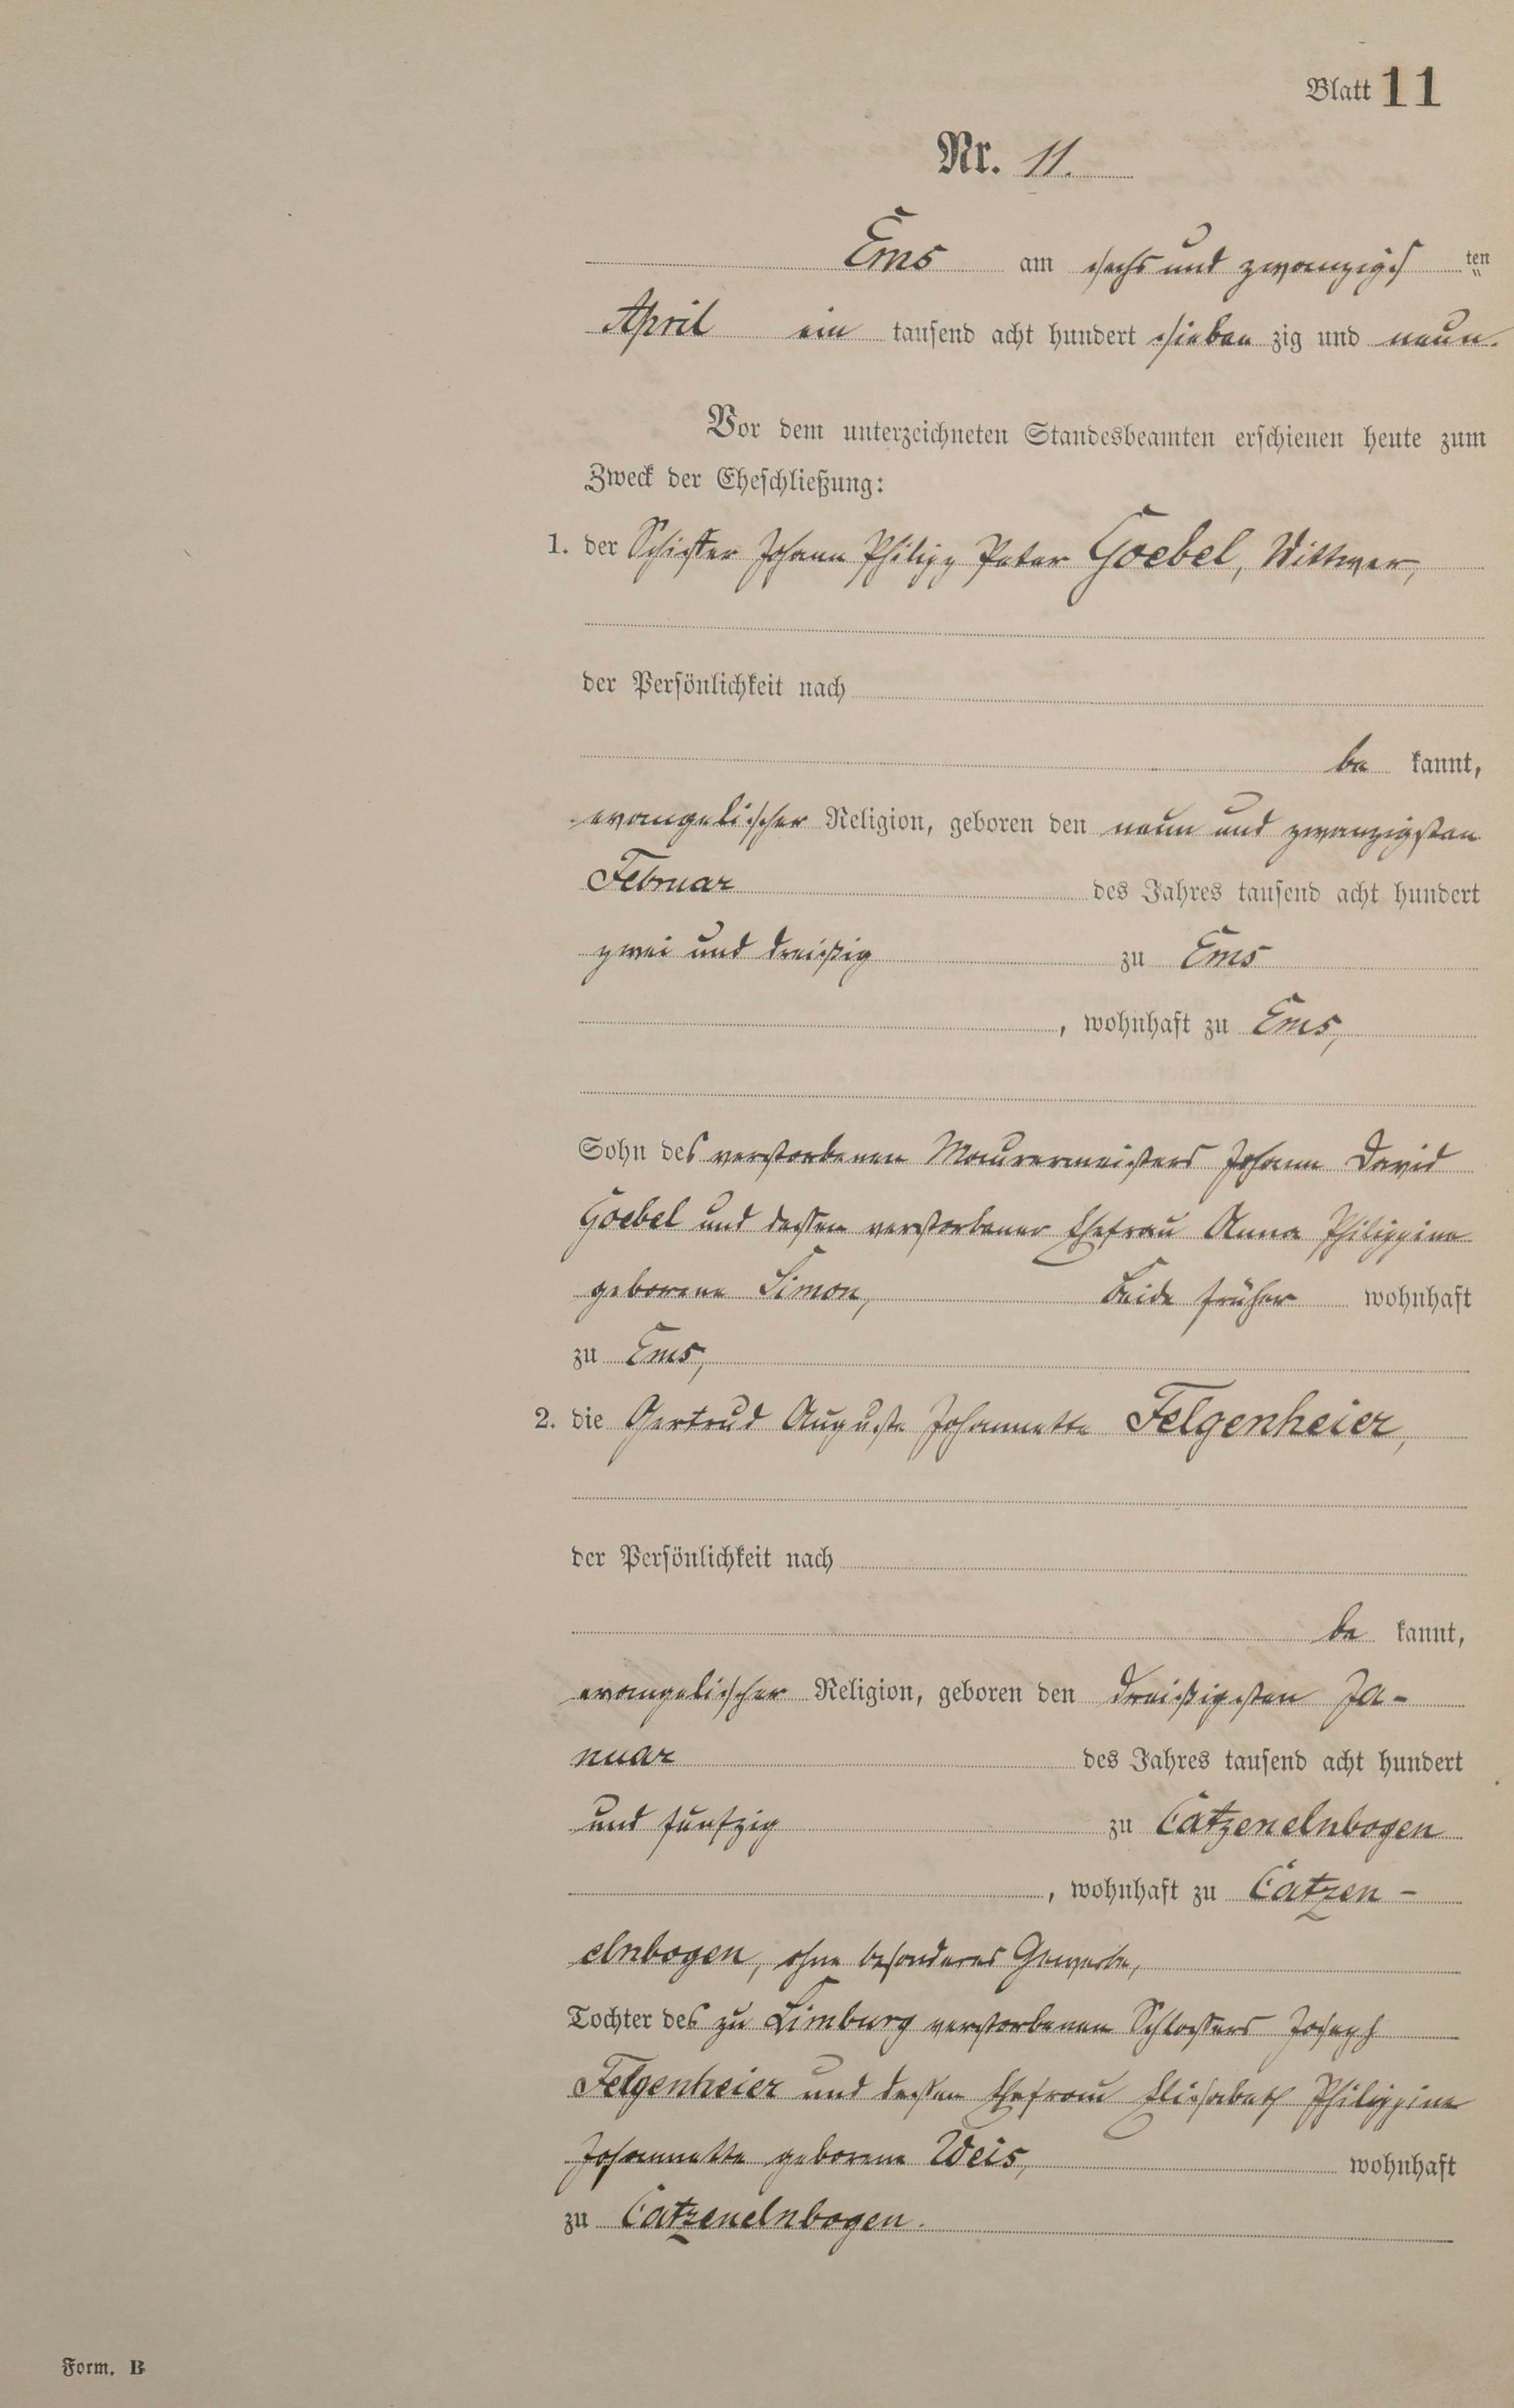 Blatt 11
Nr. 11.
Ems am sechs und zwanzigs ten
April ein tausend acht hundert sieben zig und neun.
Vor dem unterzeichneten Standesbeamten erschienen heute zum
Zweck der Eheschließung:
1. der Schiffer Johann Philipp Peter Goebel, Wittwer,
der Persönlichkeit nach
be kannt,
evangelischer Religion, geboren den neun und zwanzigsten
Februar des Jahres tausend acht hundert
zwei und dreißig zu Ems
, wohnhaft zu Ems,
Sohn des verstorbenen Maurermeisters Johann David
Goebel und dessen verstorbener Ehefrau Anna Philippine
geborene Simon, Beide früher wohnhaft
zu Ems,
2. die Gertrud Auguste Johannette Felgenheier,
der Persönlichkeit nach
be kannt,
evangelischer Religion, geboren den dreißigsten Ja-
nuar des Jahres tausend acht hundert
und fünfzig zu Catzenelnbogen
, wohnhaft zu Catzen-
elnbogen, ohne besonderes Gewerbe,
Tochter des zu Limburg verstorbenen Schlossers Joseph
Felgenheier und dessen Ehefrau Elisabeth Philippine
Johannette geborene Weis, wohnhaft
zu Catzenelnbogen.
Form. B